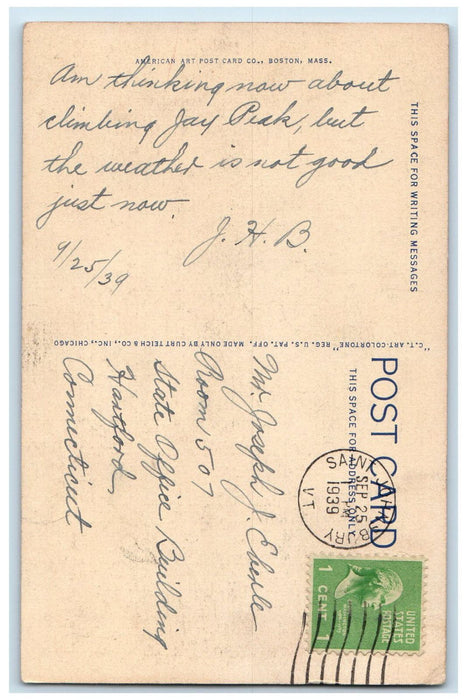 AMERICAN ART POST CARD CO., BOSTON, MASS.
Am thinking now about
climbing Jay Peak, but
the weather is not good
just now.
J. H. B.
9/25/39
THIS SPACE FOR WRITING MESSAGES
"C.T. ART-COLORTONE" REG. U.S. PAT. OFF. MADE ONLY BY CURT TEICH & CO., INC., CHICAGO
POST CARD
THIS SPACE FOR ADDRESS ONLY
Mr. Joseph J. Eberle
Room 507
State Office Building
Hartford,
Connecticut
SAINT JOHNSBURY
SEP 25
PM
1939
VT.
UNITED
STATES
POSTAGE
1 CENT 1